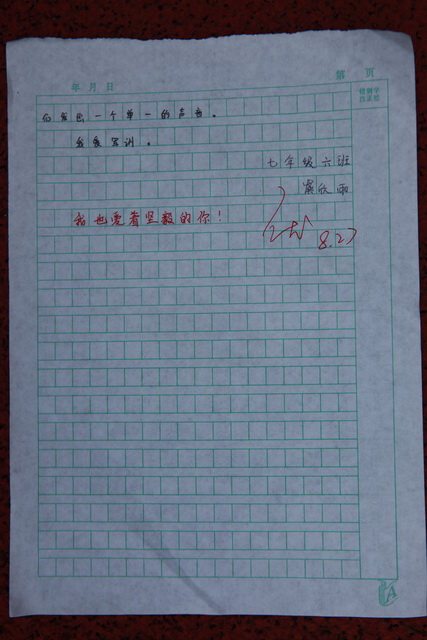 年 月 日 第 页
心发出一个单一的声音。
我爱军训。
七年级六班
欣雨
我也爱着坚毅的你！
8.27